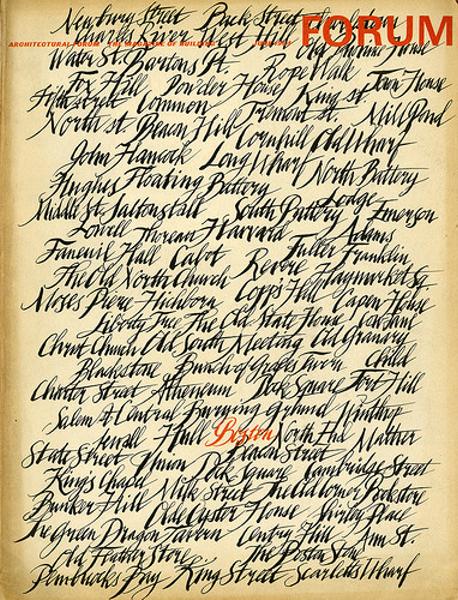 FORUM
ARCHITECTURAL FORUM THE MAGAZINE OF BUILDING
Newbury Street Back Street
Charles River West Hill
Water St. Bartons Pt. Rope Walk
Fox Hill Powder House King st Town House
Fifth street Common Tremont st. Mill Pond
North st. Beacon Hill Cornhill Old Wharf
John Hancock Long Wharf North Battery
Hughes Floating Battery Lodge
Middle St. Saltonstall South Battery Emerson
Lowell Thoreau Harvard Adams
Faneuil Hall Cabot Fuller Franklin
The Old North Church Revere Haymarket Sq
Moses Pierce Hichborn Copp's Hill Capen House
Liberty Tree The Old State House
Christ Church Old South Meeting Old Granary
Blackstone Bunch of Grapes Tavern Child
Charter Street Athenaeum Dock Square Fort Hill
Salem St Central Burying Ground Winthrop
Sewall Hull Boston North End Mather
State Street Union Beacon Street
King's Chapel Dock Square Cambridge Street
Bunker Hill Milk Street The Old Corner Bookstore
Olde Oyster House Shirley Place
The Green Dragon Tavern Centry Hill Ann St.
Old Feather Store The Boston Stone
Pembrocks Bay King Street Scarletts Wharf